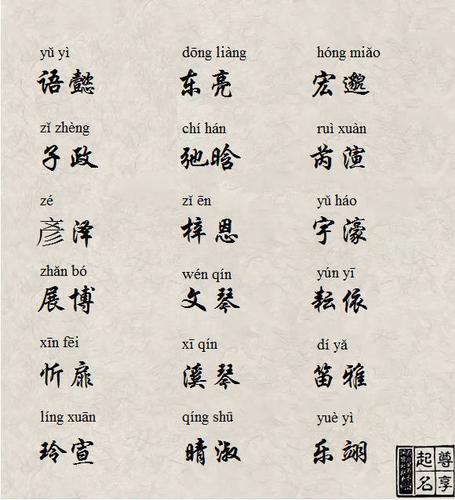 yǔ yì dōng liàng hóng miǎo
语懿 东亮 宏邈
zǐ zhèng chí hán ruì xuàn
子政 弛晗 芮演
zé zǐ ēn yǔ háo
彦泽 梓恩 宇濠
zhǎn bó wén qín yún yī
展博 文琴 耘依
xīn fēi xī qín dí yǎ
忻扉 溪琴 笛雅
líng xuān qíng shū yuè yì
玲宣 晴淑 乐翊
尊享
起名